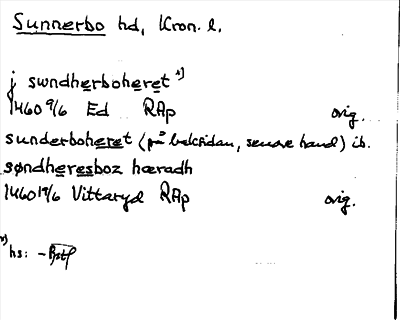 Sunnerbo hd, Kron. l.
j swndherboheret x)
1460 9/6 Ed RAp orig.
sunderboheret (på baksidan, senare hand) ib.
søndheresboz hæradh
1460 19/6 Vittaryd RAp orig.
x) hs: -